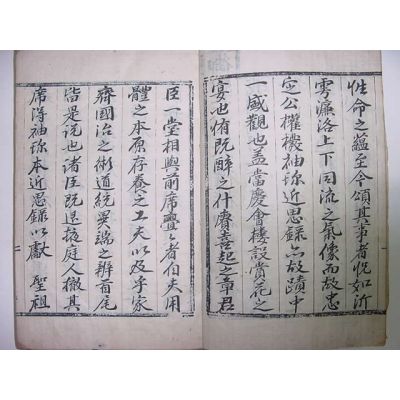 性命之蘊至今頌其事者怳如沂
雩濂洛上下同流之氣像而故忠
定公權橃袖珍近思錄亦故蹟中
一盛觀也盖當慶會樓設賞花之
宴也侑既醉之什賡喜起之章君
臣一堂相與前席亹々者夫用
體之本原存養之工夫以及乎家
齊國治之術道統異端之辨首尾
皆是說也諸臣既退掖庭人撤其
席得袖珍本近思錄以獻 聖祖